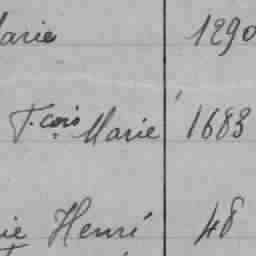 Marie 1290
F.çois Marie 1683
ie Henri 48